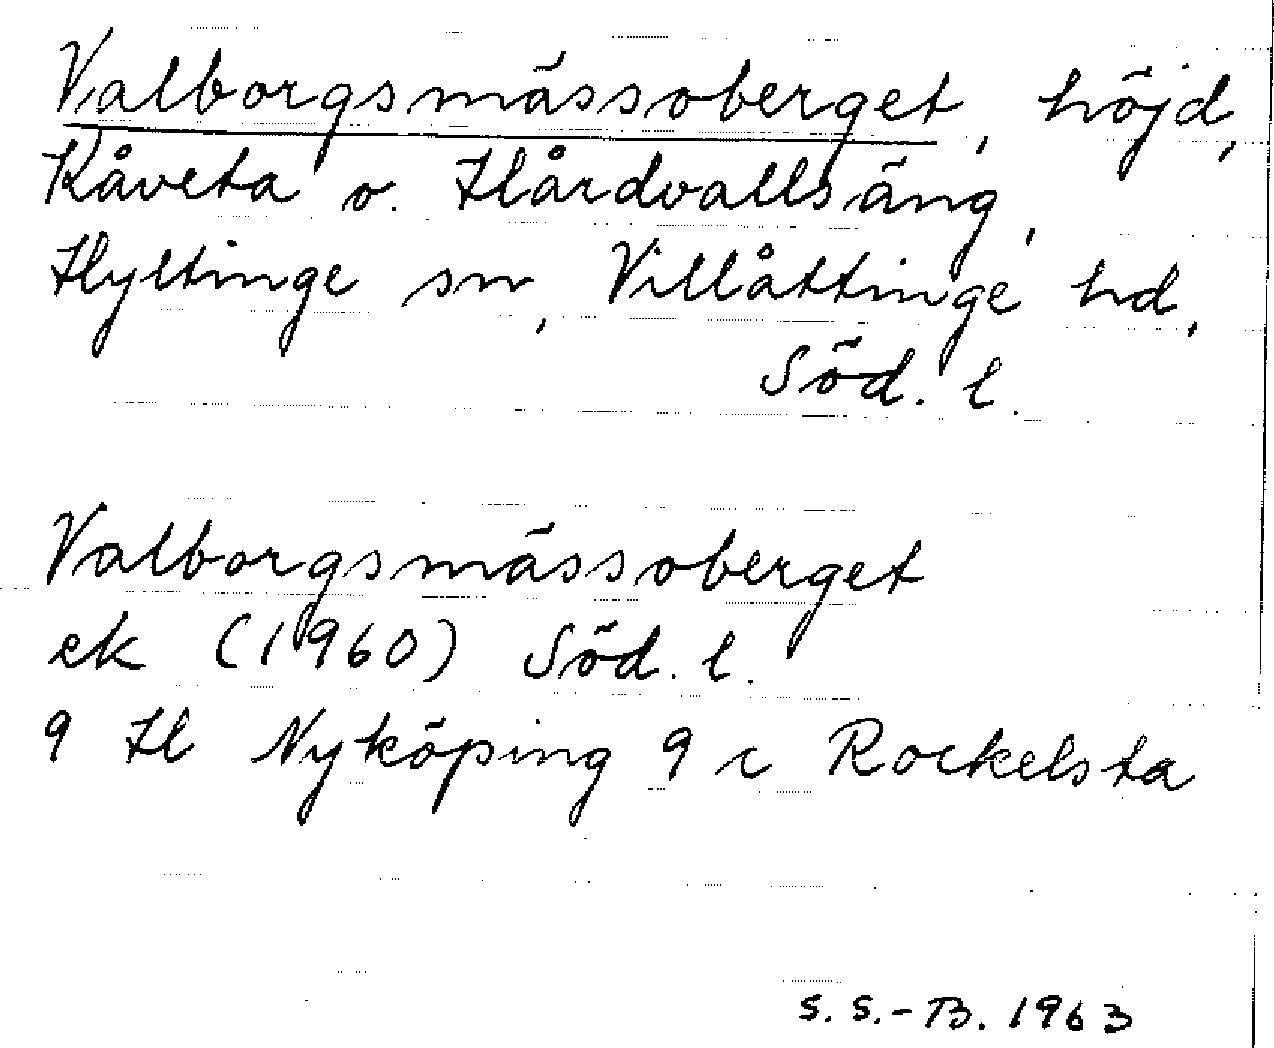 Valborgsmässoberget, höjd,
Kåveta o. Hårdvallsäng,
Hyltinge sn, Villåttinge hd,
Söd. l.
Valborgsmässoberget
ek (1960) Söd. l.
9 H Nyköping 9 c Rockelsta
S. S.-B. 1963